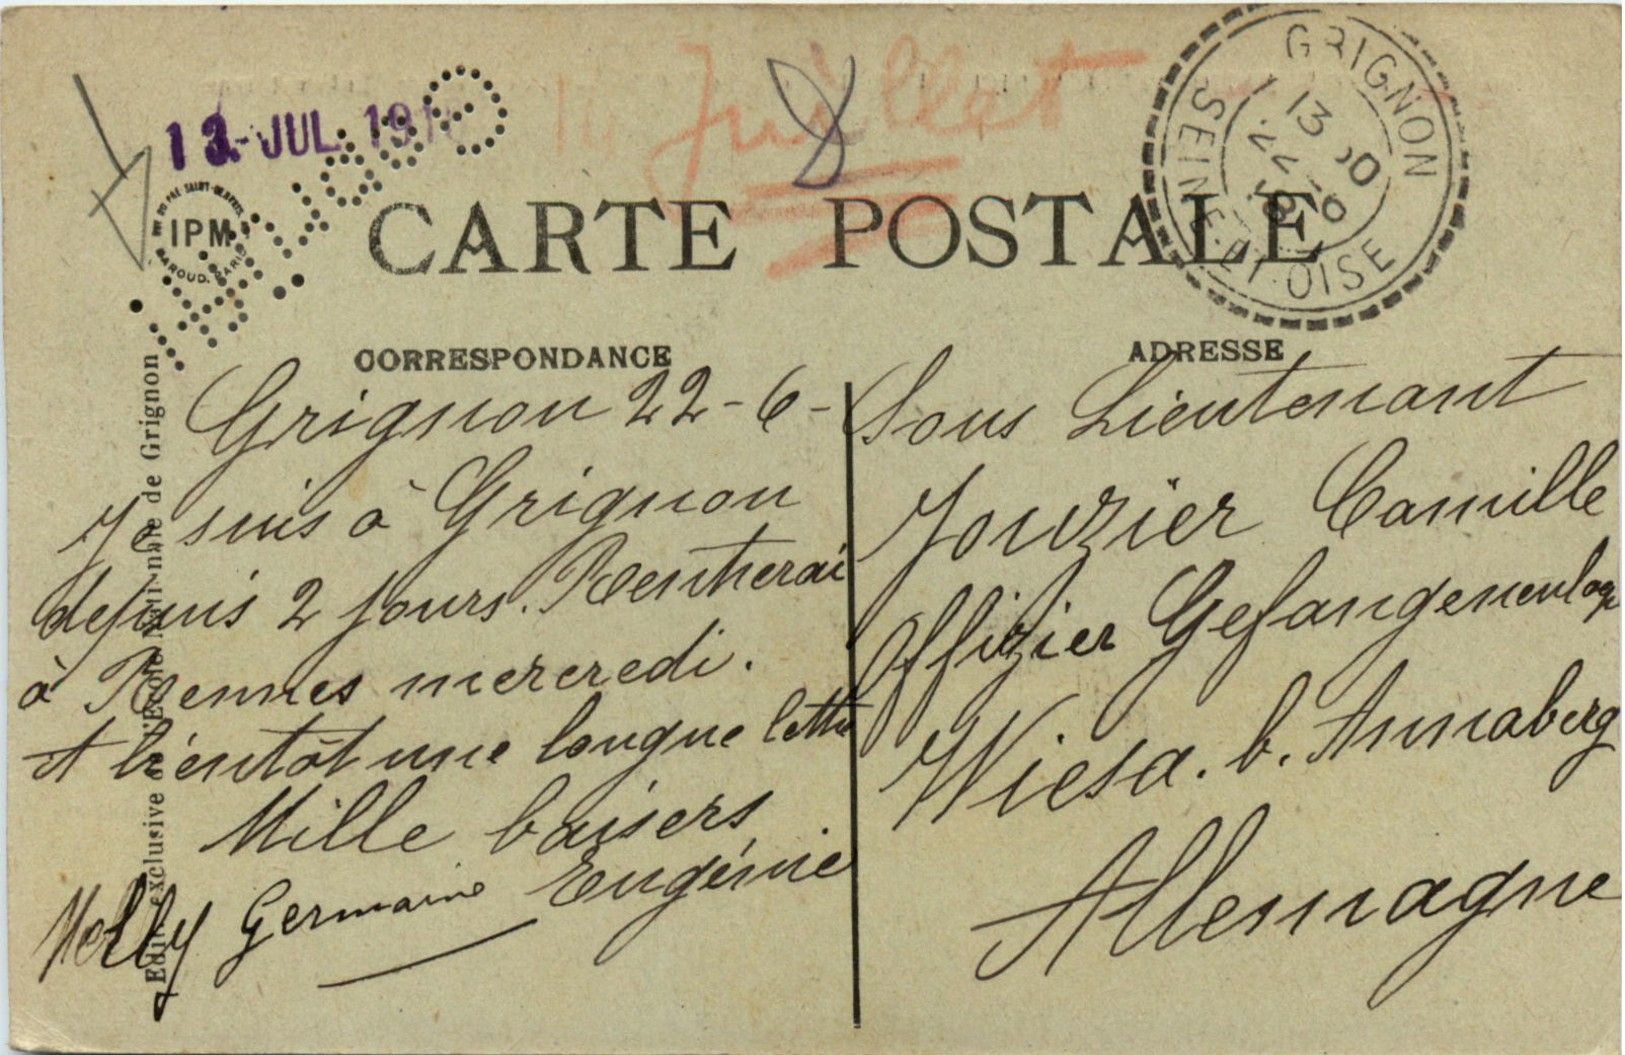 13.-JUL. 191
Juillet
8
GRIGNON
13 50
22-6
SEINE-ET-OISE
IPM
CARTE POSTALE
CORRESPONDANCE
ADRESSE
Grignon 22-6-
Je suis à Grignon
depuis 2 jours. Rentrerai
à Rennes mercredi.
A bientôt une longue lettre
Mille baisers
Eugénie
Germaine
Sous Lieutenant
Jouzier Camille
Offizier Gefangenenlager
Wiesa. b. Annaberg
Allemagne
Edition exclusive de l'Ecole Nationale de Grignon